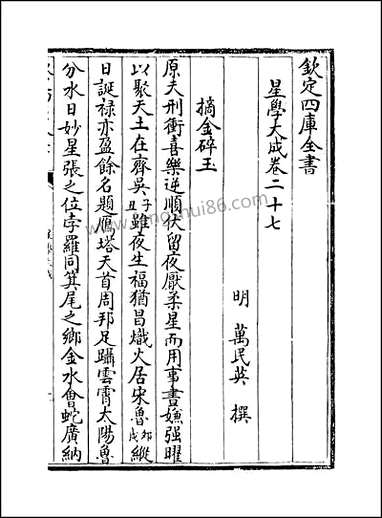 欽定四庫全書
星學大成卷二十七
明 萬民英 撰
摘金碎玉
原夫刑衝喜樂逆順伏留夜厭柔星而用事晝嫌强曜
以聚天土在齊吳子丑雖夜生福猶昌熾火居宋魯卯戌縱
日誕祿亦盈餘名題鴈塔天首周邦足躡雲霄太陽魯
分水日妙星張之位孛羅同箕尾之鄉金水會蛇廣納